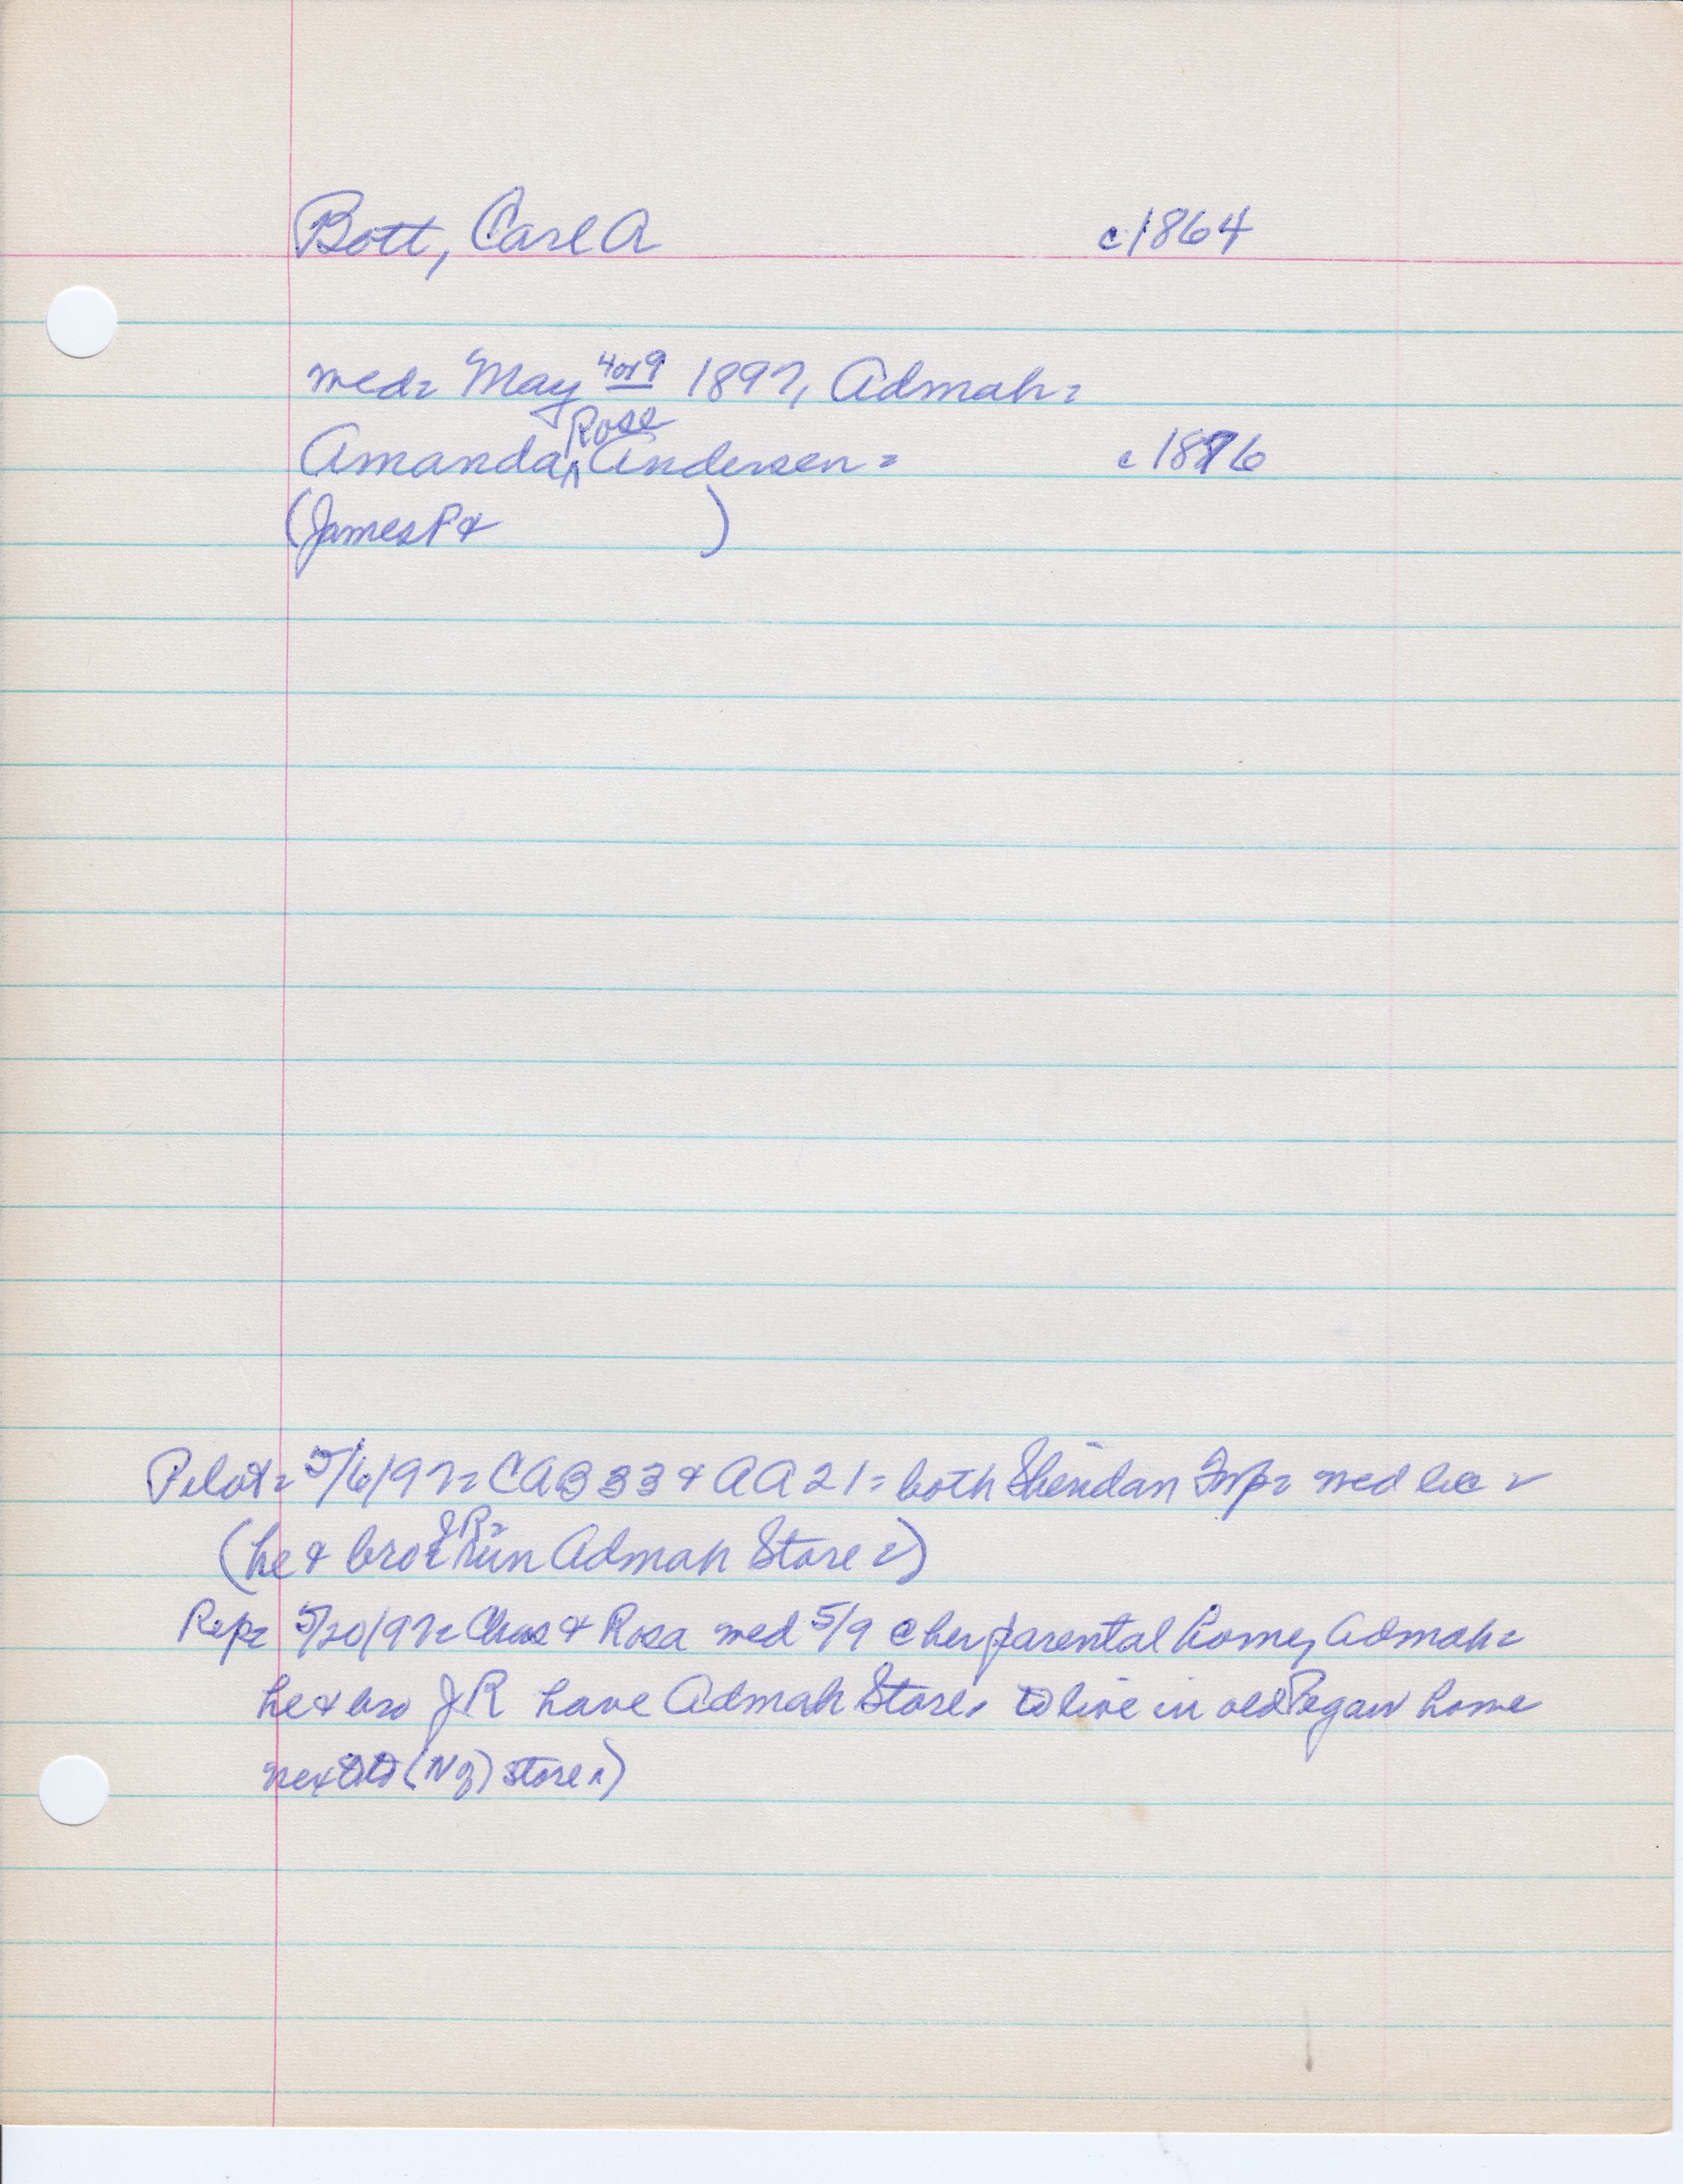 Bott, Carl A c1864
med= May 4 or 9 1897, Admah=
Amanda Rose Andersen= c1876
(James P & )
Pilot= 5/6/97= CAB 33 & AA 21= both Sheridan Twp= med lic=
(he & bro JR= run Admah Store=)
Rep= 5/20/97= Chas & Rosa med 5/9 @ her parental home, Admah=
he & bro JR have Admah Store, to live in old Regan home
next to (N of) store.)